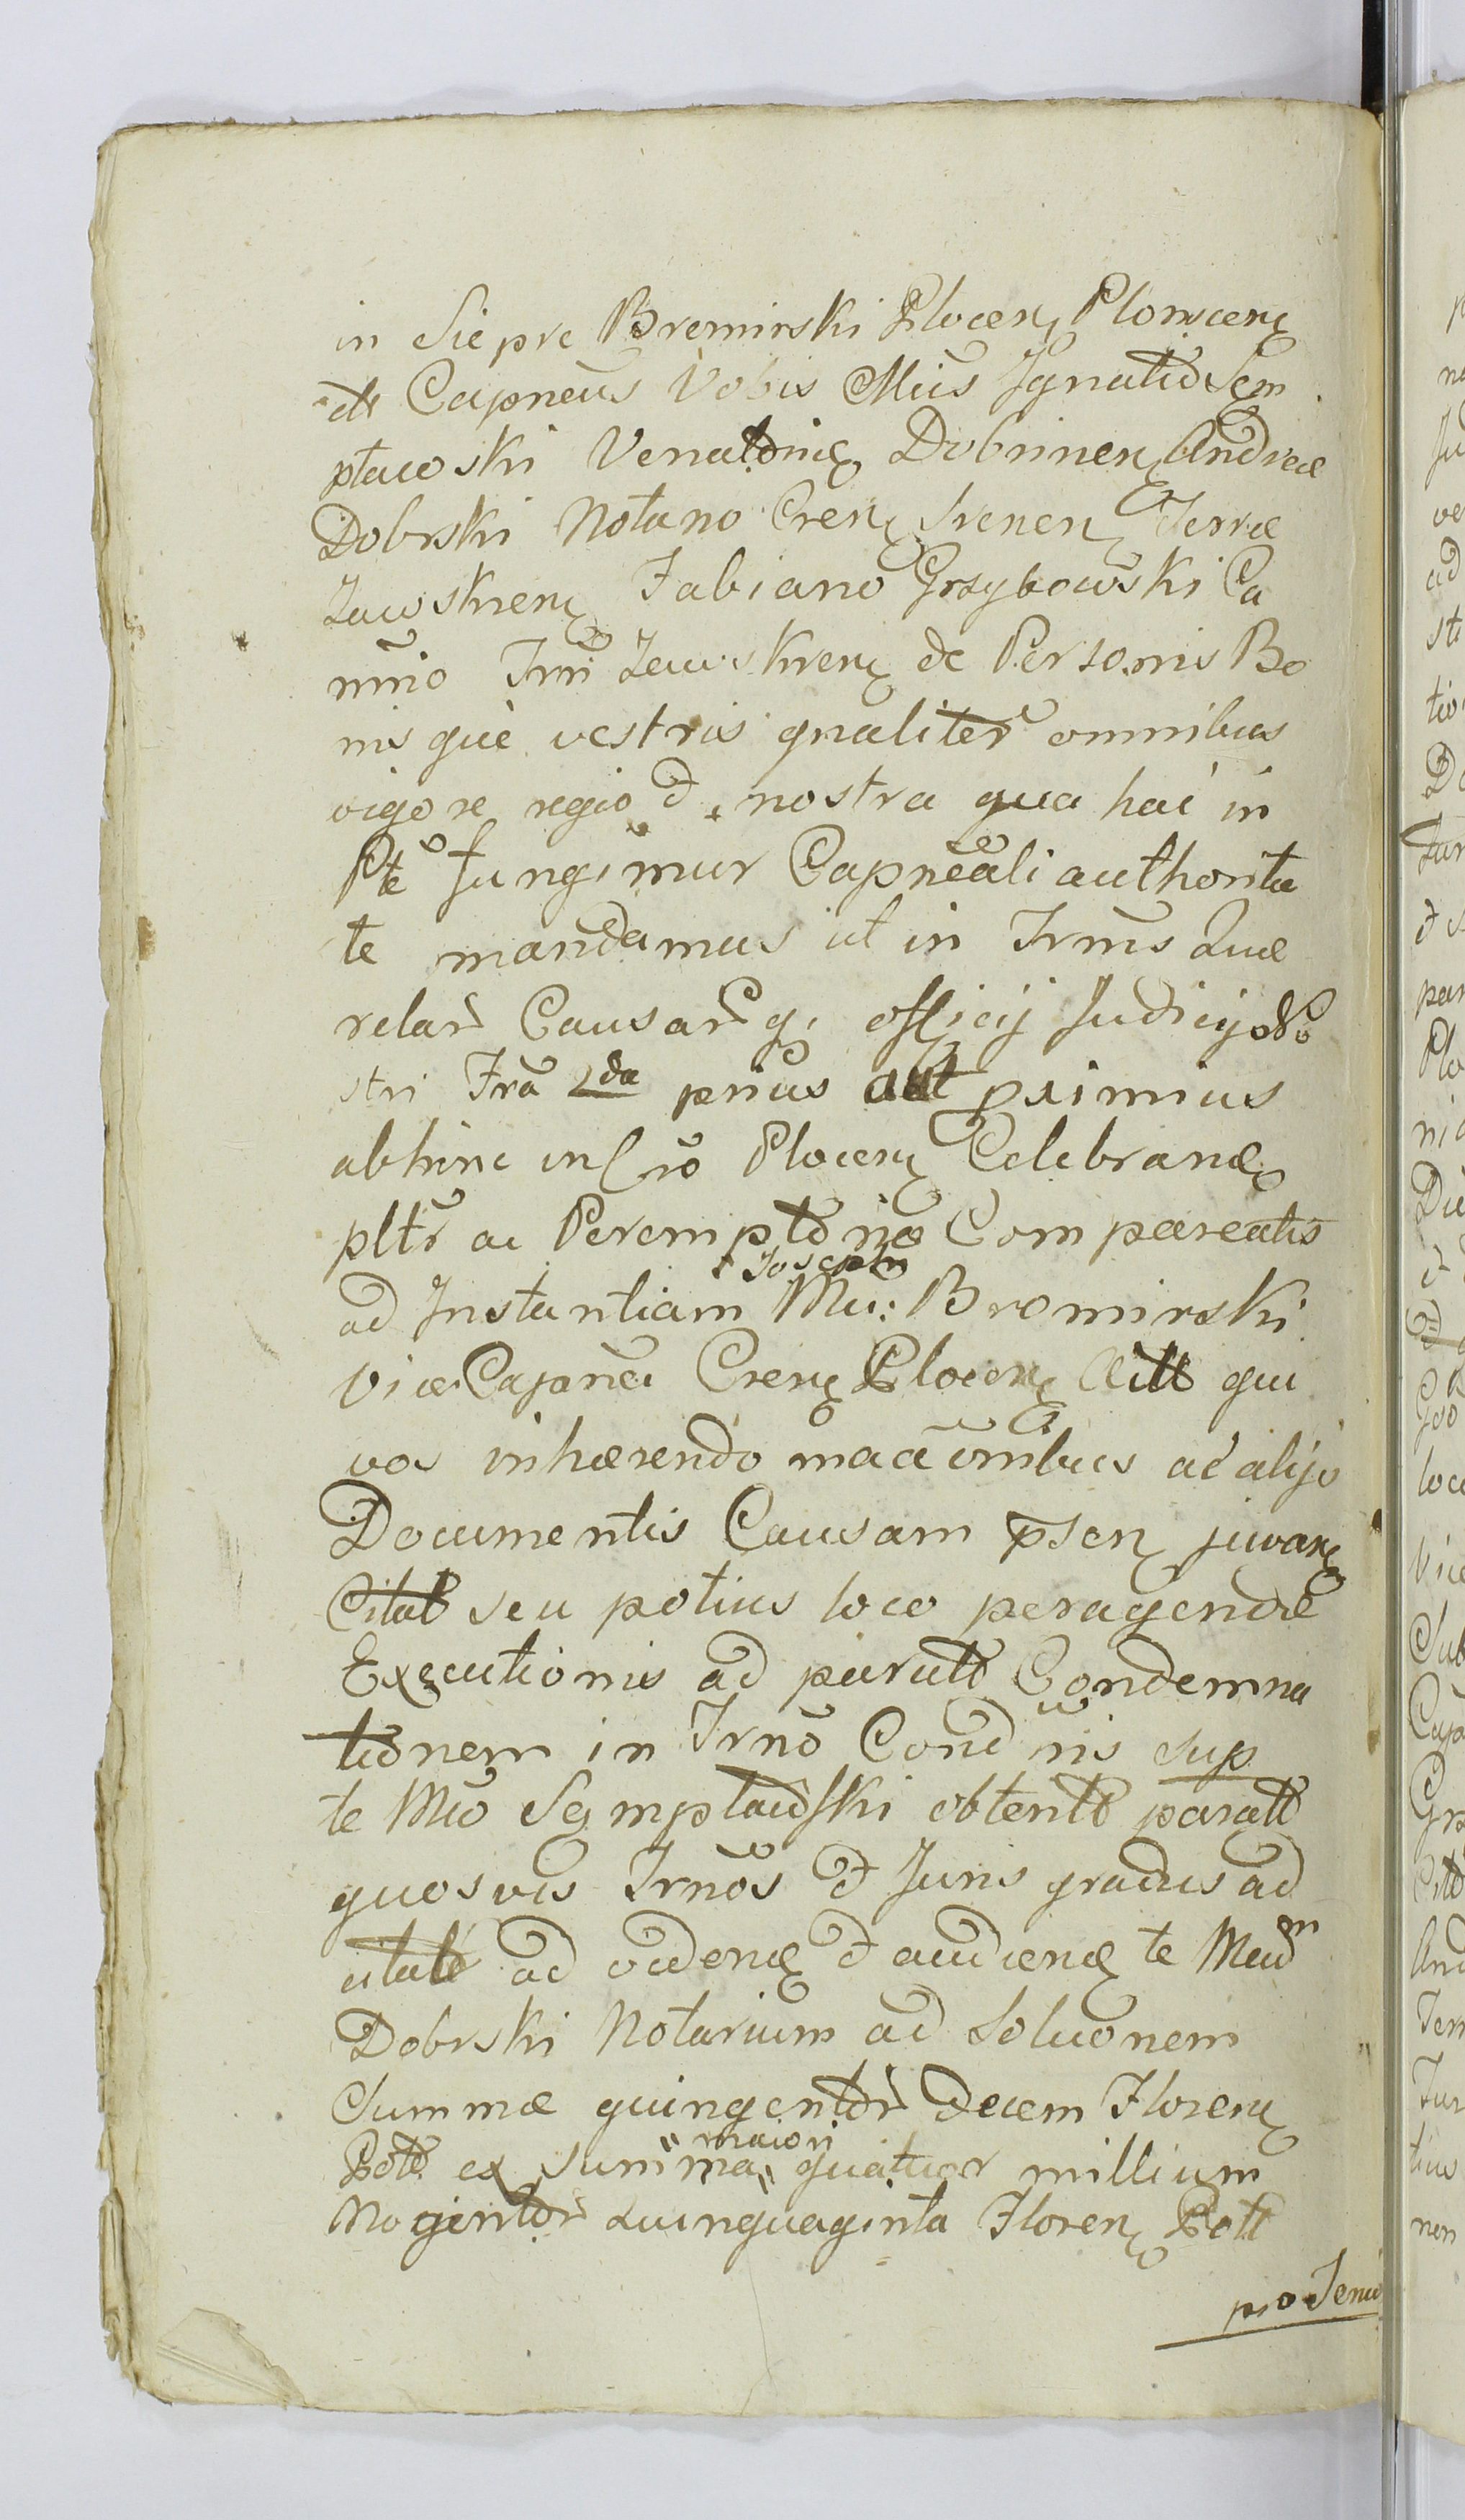 in Siepre Bremirski Plocen Plonscen
et Capneus Vobis Mıis Ignatio Sem
pławski Venatorie Dobrinen Andreæ
Dobrski Notario Cren Srenen Terræ
Zawskren Fabiano Grzybowski Ca
mrio Trrii Zawskren de Personis Bo
nisque vestris gnaliter omnibus
vigore regio et nostra qua hac in
Pte fungimur Capneali authorita
te mandamus ut in Trmis Quæ
relar Causar q officij Judicij No
stri Fra 2da prius aut pximius
abhinc in Cro Plocen Celebran
pltr ac Peremptorie Compareatis
Joseph
ad Instantiam Mci: Bromirski
Vice Capnei Cren Plocen Actt qui
vos inhærendo maã omibus ac alijs
Documentis Causam psen juvan
Citat seu potius loco peragendæ
Executionis ad paratt Condemna
tionem in Trno Cond nis sup
te Mco Sempławski obtentt paratt
quosvis Trnos et Juris gradus ad
citatt ad viden et audien te Mcum
Dobrski Notarium ad Soluonem
Summæ quingentor decem Floren
maiori
Pott ex summa quatuor millium
Nogentor Quinquaginta Floren Pott
pro Tenu